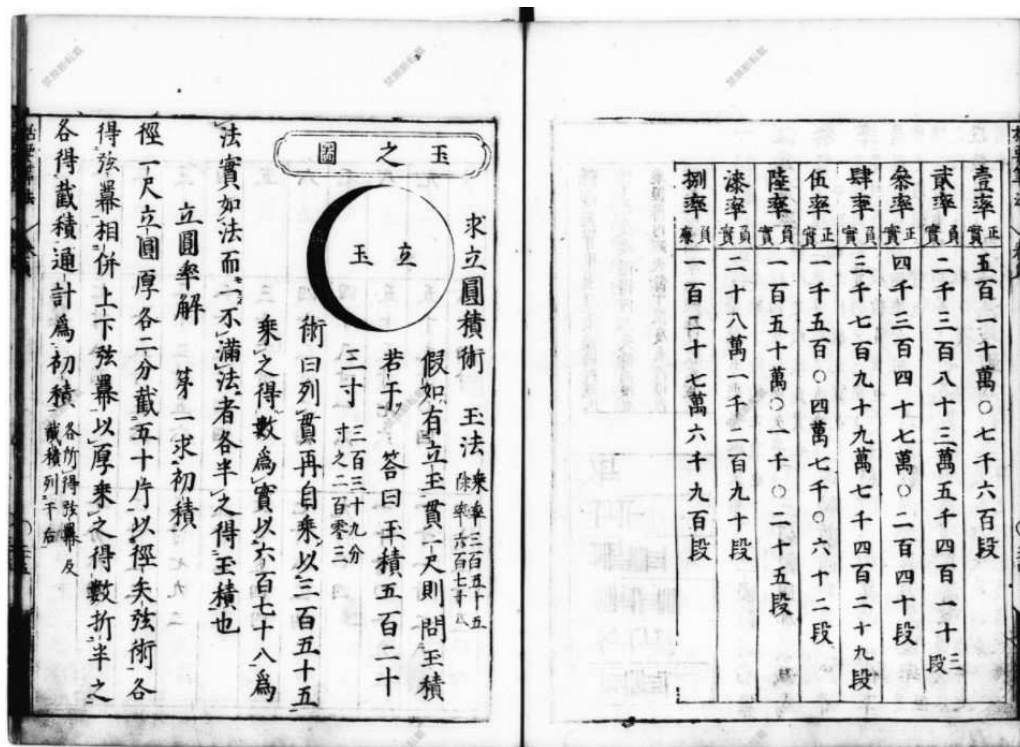 壹率 正實 五百一十萬〇七千六百段
貳率 負實 二千三百八十三萬五千四百一十三段
參率 正實 四千三百四十七萬〇二百四十段
肆率 負實 三千七百九十九萬七千四百二十九段
伍率 正實 一千五百〇四萬七千〇六十二段
陸率 負實 一百五十萬〇一千〇二十五段
漆率 負實 二十八萬一千二百九十段
捌率 負 一百二十七萬六千九百段
玉之圖
立玉
求立圓積術 玉法 乘率三百五十五
除率六百七十八
假如有立玉貫一尺則問玉積
若干 答曰玉積五百二十
三寸 三百三十九分
寸之二百零三
術曰列貫再自乘以三百五十五
乘之得數爲實以六百七十八爲
法實如法而一不滿法者各半之得玉積也
立圓率解 第一 求初積
徑一尺立圓厚各二分截五十片以徑矢弦術各
得弦冪相併上下弦冪以厚乘之得數折半之
各得截積通計爲初積 各所得弦冪及
截積列于右